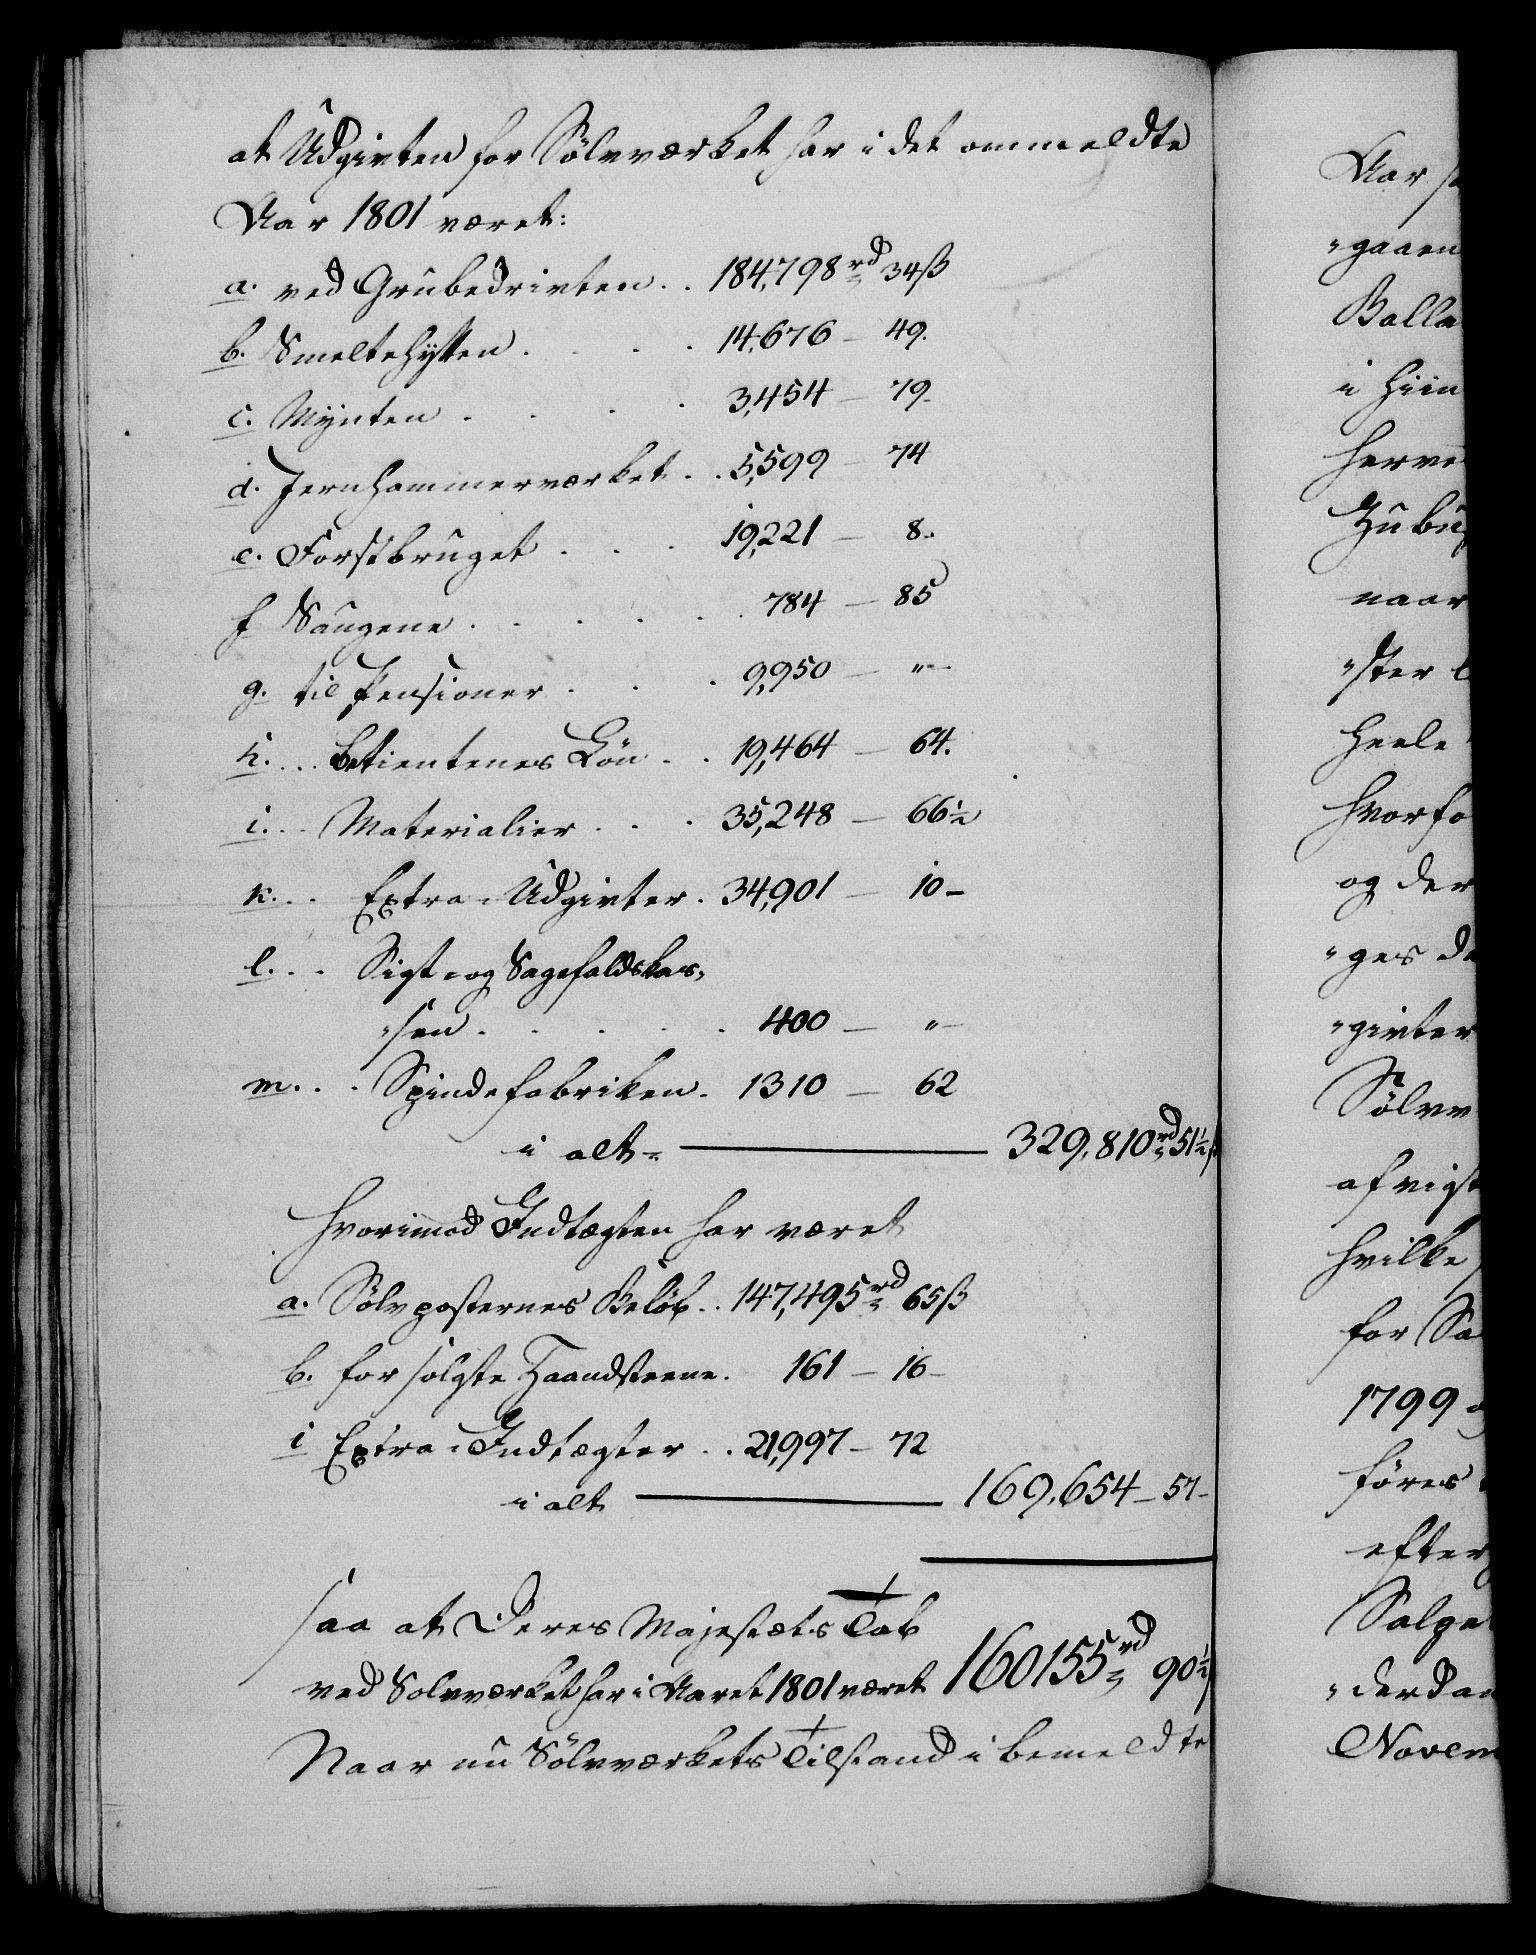 at Udgivten for Sölvværket har i det ommeldte
Aar 1801 været:
a. ved Grubedrivten . . 184,798 rd 34 ß
b. Smeltehytten . . . . 14,676 - 49.
c. Mÿnten . . . . 3,454 - 79.
d. Jernhammerværket . . 5,599 - 74
e. Forstbruget . . . 19,221 - 8.
f Saugene . . . . . 784 - 85
g. til Pensioner . . . 9,950 - "
h. . . Betientenes Lön . . 19,464 - 64.
i. . . Materialier . . . 35,248 - 66½
k. . . Extra-Udgivter . 34,901 - 10 -
l. . . Sigt- og Sagefaldskas-
"sen . . . . . 400 - "
m. . . Spindefabriken . 1310 - 62
i alt = 329,810 rd 51½ ß
hvorimod Indtægten har været
a. Sölvposternes Belöb . . 147,495 rd 65 ß
b. for solgte Haandsteene . 161 - 16 -
i Extra-Indtægter . . 21,997 - 72
i alt 169,654 - 57 -
saa at Deres Majestæts Tab
ved Solvværket har i Aaret 1801 været 160155 rd 90½ ß
Naar nu Sölvværkets Tilstand i bemeldte
Aar
"gaaen
Balla
i hiin
herve
naar
"ster
heele
hvorfo
og der
"ges
"givter
Sölvv
afvigt
hvilke
for Sa
1799
föres
efter
Salge
"derdan
Novem